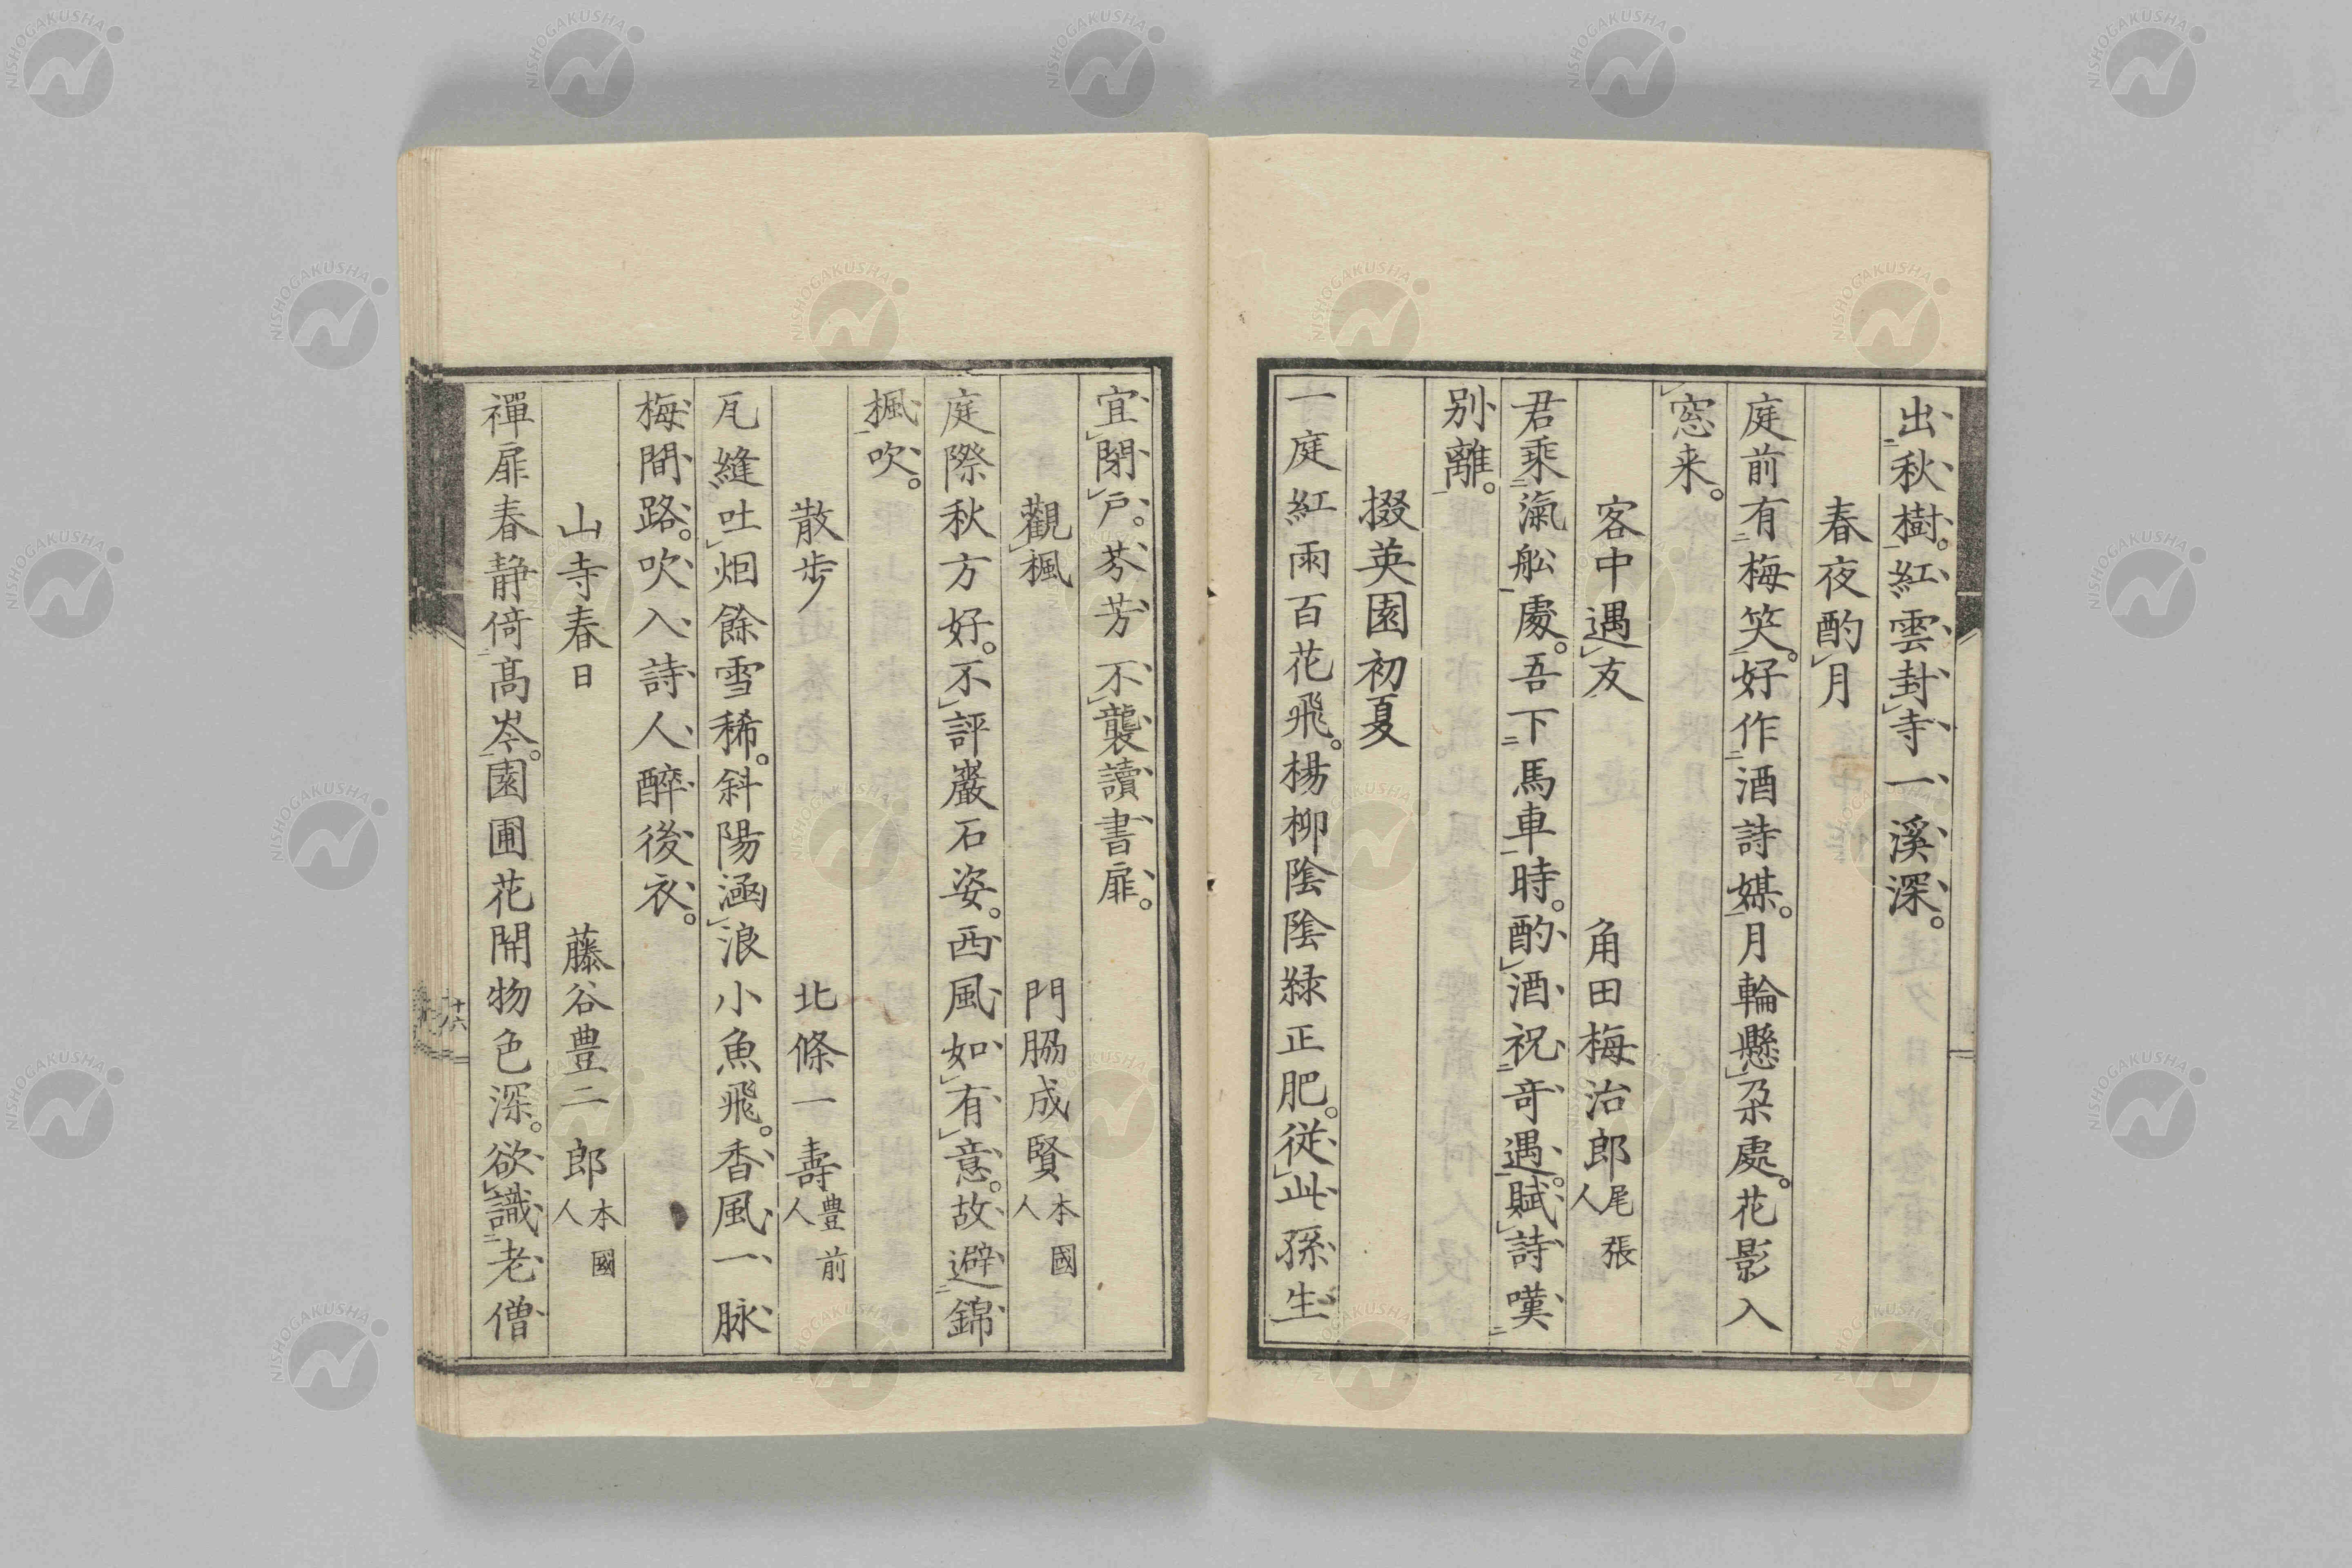 出秋樹。紅雲封寺一溪深。
春夜酌月
庭前有梅笑。好作酒詩媒。月輪懸朶處。花影入
窓来。
客中遇友 角田梅治郎 尾張人
君乘滊舩處。吾下馬車時。酌酒祝奇遇。賦詩嘆
別離。
掇英園初夏
一庭紅雨百花飛。楊柳陰陰緑正肥。従此孫生
宜閉戸。芬芳不襲讀書扉。
觀楓 門脇成賢 本國人
庭際秋方好。不評巖石姿。西風如有意。故避錦
楓吹。
散步 北條一壽 豊前人
瓦縫吐烟餘雪稀。斜陽涵浪小魚飛。香風一脉
梅間路。吹入詩人醉後衣。
山寺春日 藤谷豊二郎 本國人
禪扉春静倚高岑。園圃花開物色深。欲識老僧
十六
NISHOGAKUSHA